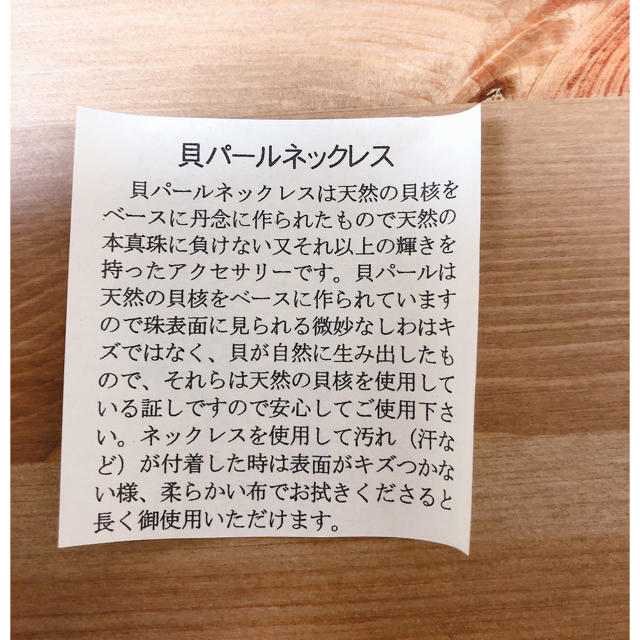 貝パールネックレス
貝パールネックレスは天然の貝核を
ベースに丹念に作られたもので天然の
本真珠に負けない又それ以上の輝きを
持ったアクセサリーです。貝パールは
天然の貝核をベースに作られています
ので珠表面に見られる微妙なしわはキ
ズではなく、貝が自然に生み出したも
ので、それらは天然の貝核を使用して
いる証しですので安心してご使用下さ
い。ネックレスを使用して汚れ（汗な
ど）が付着した時は表面がキズつかな
い様、柔らかい布でお拭きくださると
長く御使用いただけます。